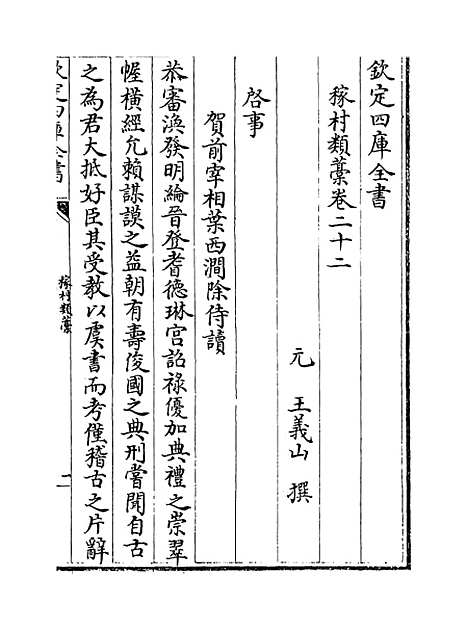 欽定四庫全書
稼村類藁卷二十二
元 王義山 撰
啓事
賀前宰相葉西澗除侍讀
恭審渙發明綸晉登耆德琳宫詔祿優加典禮之崇翠
幄橫經允賴謀謨之益朝有壽俊國之典刑嘗聞自古
之為君大抵好臣其受教以虞書而考僅稽古之片辭
欽定四庫全書
稼村類藁
二